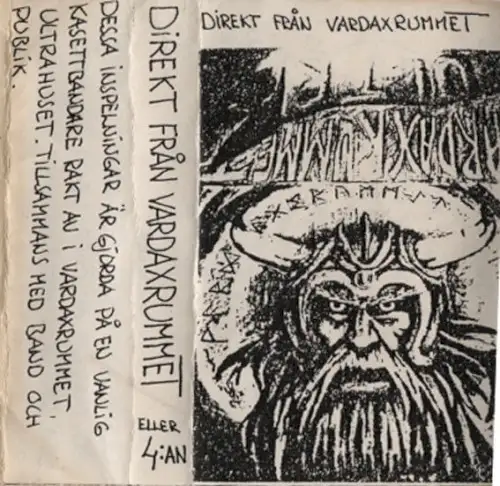 DESSA INSPELNINGAR ÄR GJORDA PÅ EN VANLIG
KASETTBANDARE RAKT AV I VARDAXRUMMET,
ULTRAHUSET. TILLSAMMANS MED BAND OCH
PUBLIK.
DiREKT FRÅN VARDAXRUMMET
ELLER
4:AN
DiREKT FRÅN VARDAXRUMMET
ARDAXRUMMET